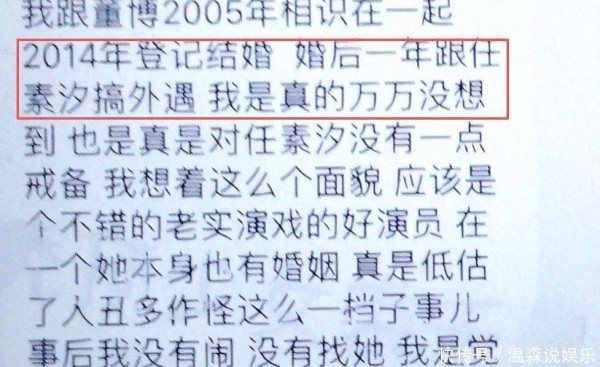 我跟董博2005年相识在一起
2014年登记结婚 婚后一年跟任
素汐搞外遇 我是真的万万没想
到 也是真是对任素汐没有一点
戒备 我想着这么个面貌 应该是
个不错的老实演戏的好演员 在
一个她本身也有婚姻 真是低估
了人丑多作怪这么一档子事儿
事后我没有闹 没有找她 我是觉
快传号/温森说娱乐